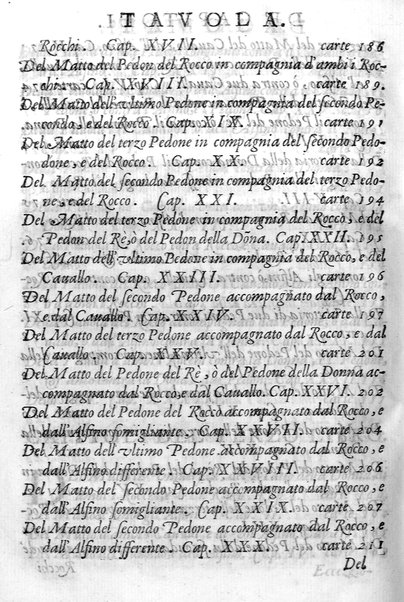 TAVOLA.
Rocchi. Cap. XVII. carte 186
Del Matto del Pedon del Rocco in compagnia d'ambi i Roc-
chi. Cap. XVIII. carte 189.
Del Matto dell'vltimo Pedone in compagnia del secondo Pe-
done, e del Rocco. Cap. XIX. carte 191
Del Matto del terzo Pedone in compagnia del secondo Pedo-
done, e del Rocco. Cap. XX. carte 192
Del Matto del secondo Pedone in compagnia del terzo Pedo-
ne, e del Rocco. Cap. XXI. carte 194
Del Matto del terzo Pedone in compagnia del Rocco, e del
Pedon del Rè, ò del Pedon della Dõna. Cap. XXII. 195
Del Matto dell'vltimo Pedone in compagnia del Rocco, e del
Cauallo. Cap. XXIII. carte 196
Del Matto del secondo Pedone accompagnato dal Rocco,
e dal Cauallo. Cap. XXIV. carte 197
Del Matto del terzo Pedone accompagnato dal Rocco, e dal
Cauallo. Cap. XXV. carte 201
Del Matto del Pedone del Rè, ò del Pedone della Donna ac-
compagnato dal Rocco, e dal Cauallo. Cap. XXVI. 202
Del Matto del Pedone del Rocco accompagnato dal Rocco, e
dall'Alfino somigliante. Cap. XXVII. carte 204
Del Matto dell'vltimo Pedone accompagnato dal Rocco, e
dall'Alfino differente. Cap. XXVIII. carte 206
Del Matto del secondo Pedone accompagnato dal Rocco, e
dall'Alfino somigliante. Cap. XXIX. carte 207
Del Matto del secondo Pedone accompagnato dal Rocco, e
dall'Alfino differente. Cap. XXX. carte 211
Del